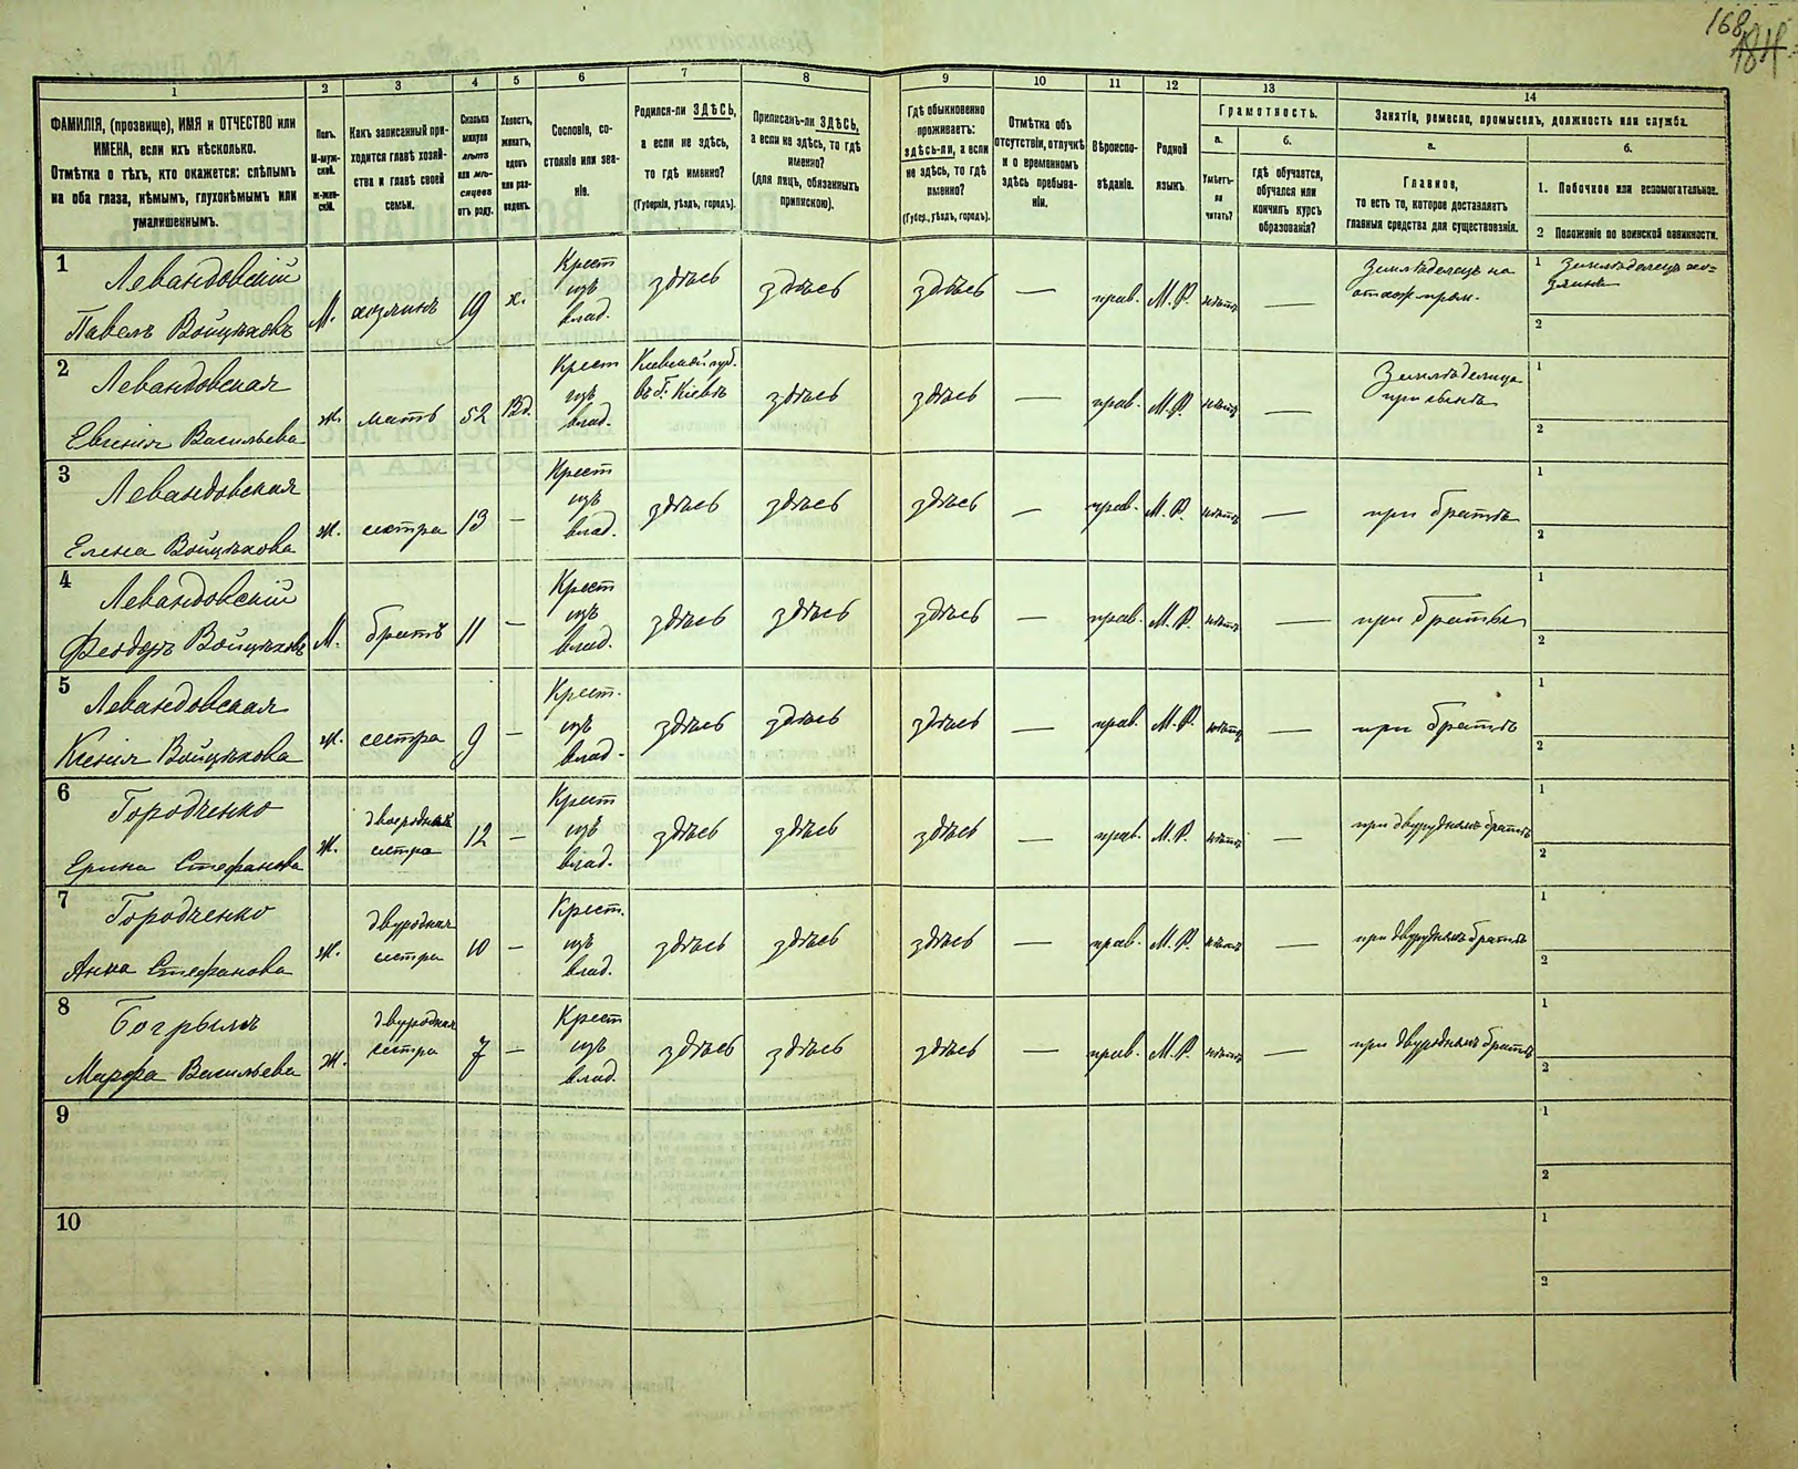 168
184
1
2
3
4
5
6
7
8
9
10
11
12
13
14
ФАМИЛІЯ, (прозвище), ИМЯ и ОТЧЕСТВО или
ИМЕНА, если ихъ нѣсколько.
Отмѣтка о тѣхъ, кто окажется: слѣпымъ
на оба глаза, нѣмымъ, глухонѣмымъ или
умалишеннымъ.
Полъ.
М-муж-
ской.
ж-жен-
скій.
Какъ записанный при-
ходится главѣ хозяй-
ства и главѣ своей
семьи.
Сколько
минуло
лѣтъ
или мѣ-
сяцевъ
отъ роду.
Холостъ,
женатъ,
вдовъ
или раз-
веденъ.
Сословіе, со-
стояніе или зва-
ніе.
Родился-ли ЗДѢСЬ,
а если не здѣсь,
то гдѣ именно?
(Губернія, уѣздъ, городъ).
Приписанъ-ли ЗДѢСЬ,
а если не здѣсь, то гдѣ
именно?
(для лицъ, обязанныхъ
припискою).
Гдѣ обыкновенно
проживаетъ:
здѣсь-ли, а если
не здѣсь, то гдѣ
именно?
(Губер., уѣздъ, городъ).
Отмѣтка объ
отсутствіи, отлучкѣ
и о временномъ
здѣсь пребыва-
ніи.
Вѣроиспо-
вѣданіе.
Родной
языкъ.
Грамотность.
а.
б.
Умѣетъ-
ли
читать?
гдѣ обучается,
обучался или
кончилъ курсъ
образованія?
Занятіе, ремесло, промыселъ, должность или служба.
а.
б.
Главное,
то есть то, которое доставляетъ
главныя средства для существованія.
1. Побочное или вспомогательное.
2 Положеніе по воинской повинности.
1
Левандовскій
Павелъ Войцѣховъ
М.
хозяинъ
19
х.
Крест
изъ
влад.
здѣсь
здѣсь
здѣсь
—
прав.
М.Р.
нѣтъ
—
Земледѣлецъ на
отхож пром.
1 Земледѣлецъ хо=
зяинъ
2
2
Левандовская
Евгенія Васильева
ж.
мать
52
Вд.
Крест
изъ
влад.
Кіевской губ.
въ г. Кіевѣ
здѣсь
здѣсь
—
прав.
М.Р.
нѣтъ
—
Земледѣлица
при сынѣ
1
2
3
Левандовская
Елена Войцѣхова
ж.
сестра
13
—
Крест
изъ
влад.
здѣсь
здѣсь
здѣсь
—
прав.
М.Р.
нѣтъ
—
при братѣ
1
2
4
Левандовскій
Феодоръ Войцѣховъ
М.
братъ
11
—
Крест
изъ
влад.
здѣсь
здѣсь
здѣсь
—
прав.
М.Р.
нѣтъ
—
при братѣ
1
2
5
Левандовская
Ксенія Войцѣхова
ж.
сестра
9
—
Крест.
изъ
влад.
здѣсь
здѣсь
здѣсь
—
прав.
М.Р.
нѣтъ
—
при братѣ
1
2
6
Городченко
Ерина Стефанова
ж.
двоюродная
сестра
12
—
Крест
изъ
влад.
здѣсь
здѣсь
здѣсь
—
прав.
М.Р.
нѣтъ
—
при двурудномъ братѣ
1
2
7
Городченко
Анна Стефанова
ж.
двуродная
сестра
10
—
Крест.
изъ
влад.
здѣсь
здѣсь
здѣсь
—
прав.
М.Р.
нѣтъ
—
при двурудномъ братѣ
1
2
8
Богрылъ
Марфа Васильева
ж.
двуродная
сестра
7
—
Крест
изъ
влад.
здѣсь
здѣсь
здѣсь
—
прав.
М.Р.
нѣтъ
—
при двуродномъ братѣ
1
2
9
1
2
10
1
2